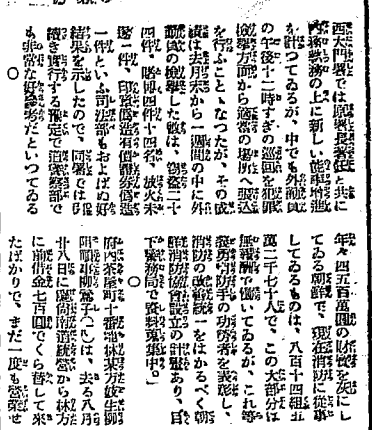 西大門署では原署長着任と共に
内務執務の上に新しい能率増進
を計つてゐるが、中でも外勤員
の午後十二時すぎの巡回を犯罪
檢擧方面から適當の場所へ張込
を行ふことゝなつたが、その成
績は去月末から一週間の中に外
勤員の檢擧した數は、窃盗二十
四件、賭博四件十四名、放火未
遂一件、印章僞造有價證券僞造
一件といふ司法部もおよばぬ好
結果を示したので、同署では引
續き實行する豫定で當警察部で
も非常な好參考だといつてゐる
○
年々四五百萬圓の財貨を灰にし
てゐる朝鮮で、現在消防に從事
してゐるものは、八百十四組五
萬二千七十八人で、この大部分は
無報酬で働いてゐるが、これ等
義勇消防手の功勞者を表彰し、
消防の改善統一をはかるべく朝
鮮消防協會設立の計畫あり、目
下警務局で資料蒐集中。
○
府內茶屋町十番地林某方妓生鄭
陽順事柳鶯子(二〇)は、去る八月
廿八日に慶尚南道統營から林方
に前借金七百圓でくら替して來
たばかりで、まだ一度も營業せ